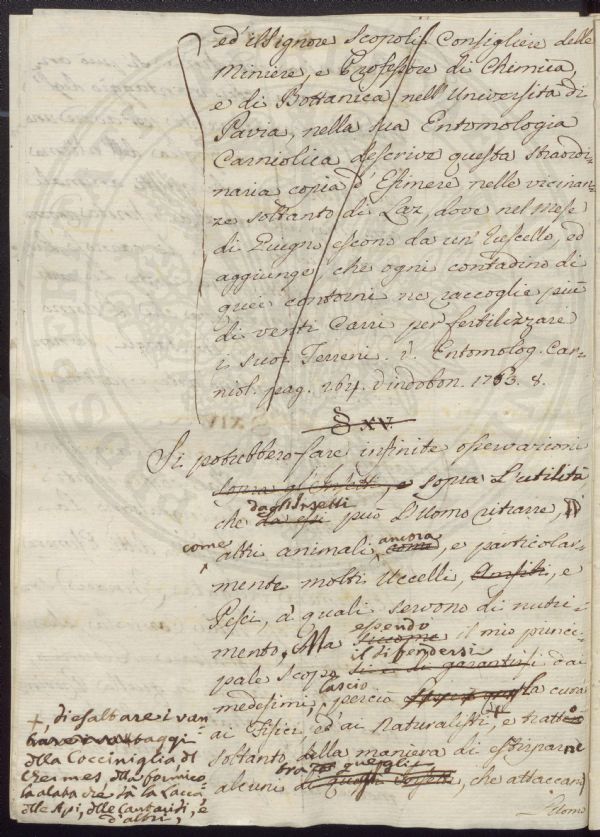 ed' il Signore Scopoli Consigliere delle
Miniere, e Professore di Chimica,
e di Bottanica nell' Università di
Pavia, nella sua Entomologia
Carniolica descrive questa straordi-
naria copia d' Efimere nelle vicinan-
ze soltanto di Laz, dove nel Mese
di Giugno escono da un' ruscello, ed
aggiunge, che ogni contadino di
quei contorni ne raccoglie più
di venti Carri per fertilizzare
i suoi Terreni. v. Entomolog. Car-
niol. pag. 264. Vindobon. 1763. 8.
§ XV
Si potrebbero fare infinite osservazioni
sopra gl' Insetti, e sopra l' utilità
dagl' Insetti
che da essi può l' Uomo ritrarre,
come altri animali ancora, e particolar-
mente molti Uccelli, Anfibi, e
Pesci, a quali servono di nutri-
mento. Ma essendo siccome il mio princi-
pale scopo il difendersi si è di garantirsi dai
medesimi, lascio perciò la cura
ai Fisici ed' ai Naturalisti +, e tratto
soltanto della maniera di estirparne
alcuni di quegli Insetti, che attaccano
l' Uomo
+ di esaltare i van
taggi
della Cocciniglia, del
Chermes, della formica
alata che fà la Lacca
delle Api, delle Cantaridi, e
d' altri,